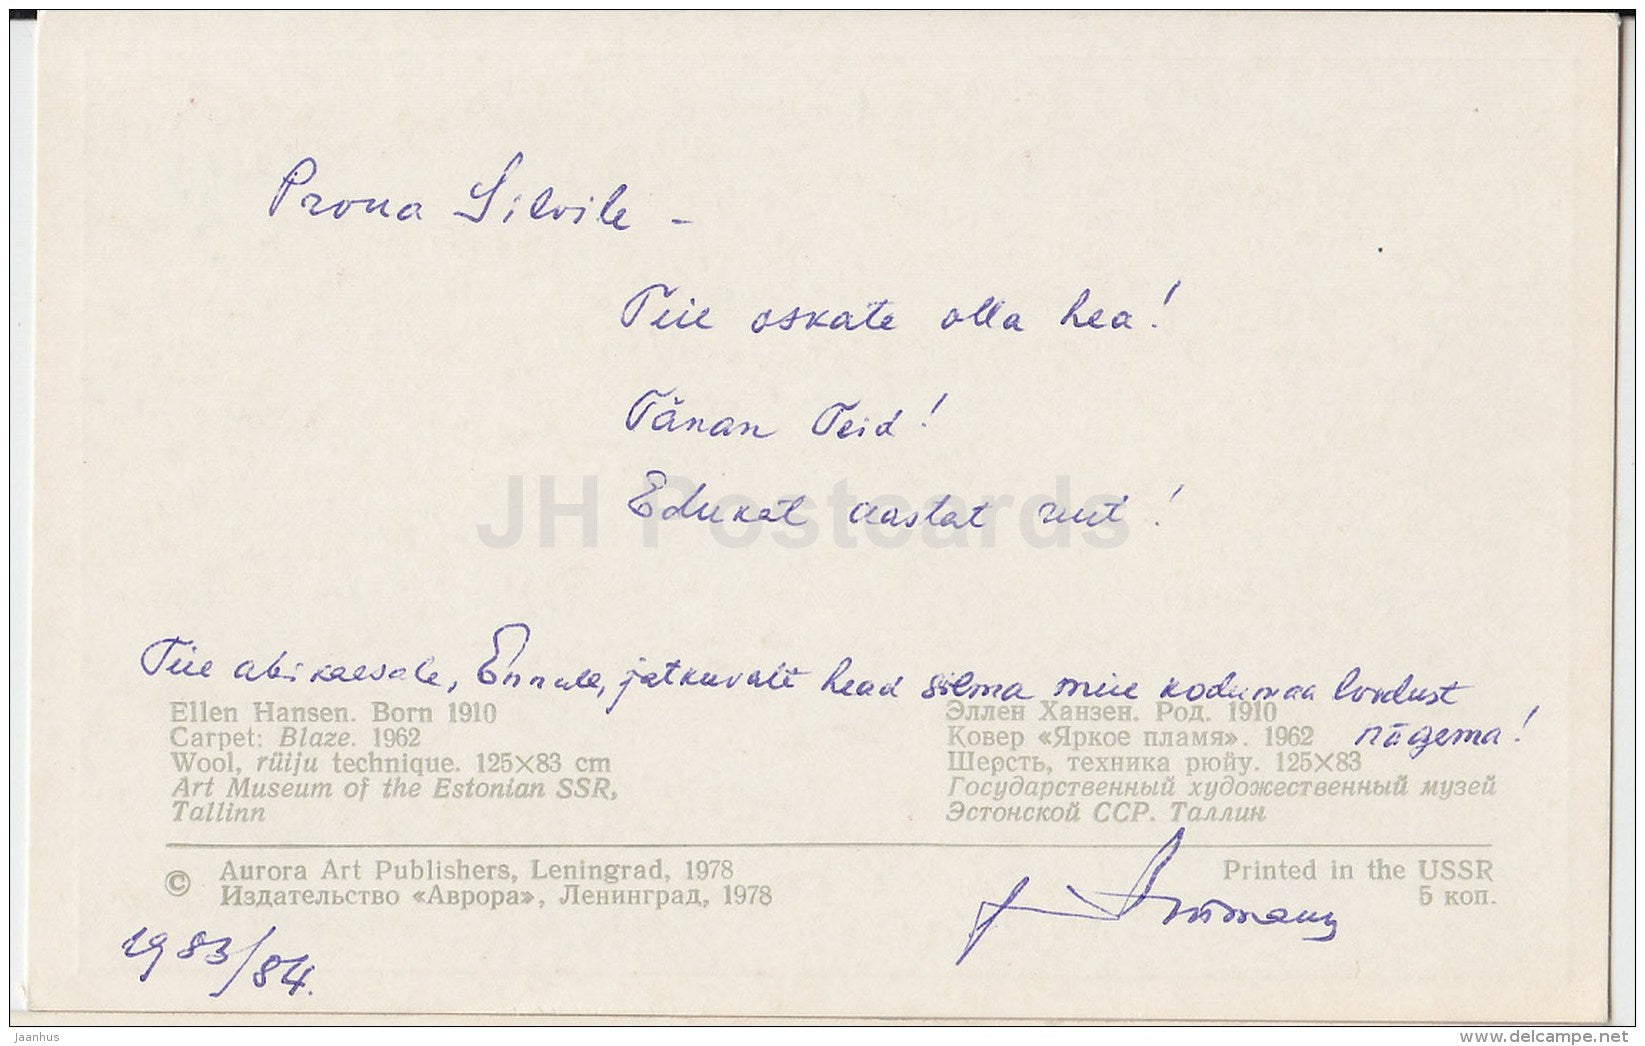 Proua Silvile –
Teie oskate olla hea!
Tänan Teid!
Edukat aastat uut!
JH Postcards
Teie abikaasale, Ennule, jätkuvalt head silma meie kodumaa loodust
nägema!
Ellen Hansen. Born 1910
Carpet: Blaze. 1962
Wool, rüiju technique. 125×83 cm
Art Museum of the Estonian SSR,
Tallinn
Эллен Ханзен. Род. 1910
Ковер «Яркое пламя». 1962
Шерсть, техника рюйу. 125×83
Государственный художественный музей
Эстонской ССР. Таллин
© Aurora Art Publishers, Leningrad, 1978
Издательство «Аврора», Ленинград, 1978
Printed in the USSR
5 коп.
1983/84.
jaanhus
http://www.delcampe.net